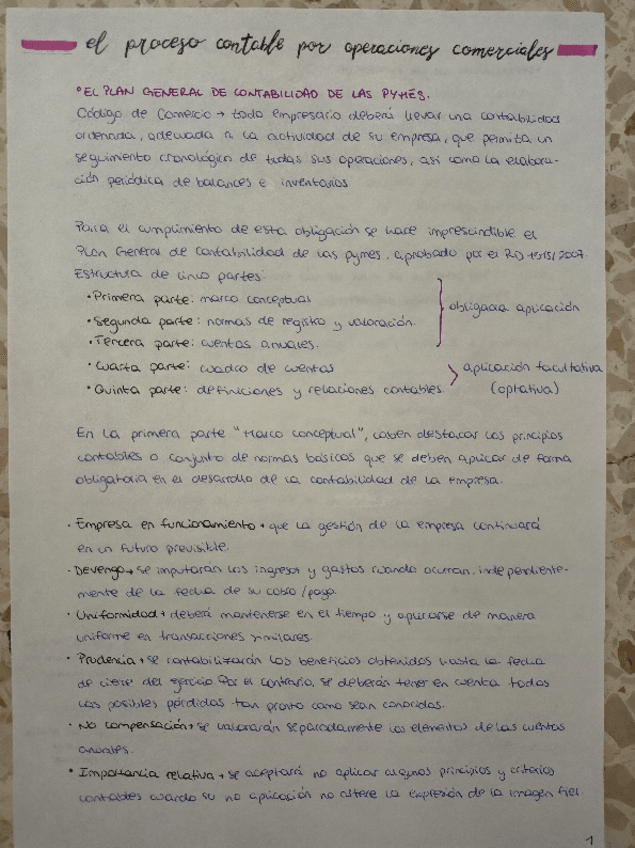 el proceso contable por operaciones comerciales
° EL PLAN GENERAL DE CONTABILIDAD DE LAS PYMES.
Código de Comercio → todo empresario deberá llevar una contabilidad
ordenada, adecuada a la actividad de su empresa, que permita un
seguimiento cronológico de todas sus operaciones, así como la elabora-
ción periódica de balances e inventarios
Para el cumplimiento de esta obligación se hace imprescindible el
Plan General de Contabilidad de las pymes, aprobado por el RD 1515/2007.
Estructura de cinco partes:
• Primera parte: marco conceptual
• Segunda parte: normas de registro y valoración.
obligada aplicación
• Tercera parte: cuentas anuales.
• Cuarta parte: cuadro de cuentas
aplicación facultativa
• Quinta parte: definiciones y relaciones contables.
(optativa)
En la primera parte "Marco conceptual", caben destacar los principios
contables o conjunto de normas básicas que se deben aplicar de forma
obligatoria en el desarrollo de la contabilidad de la empresa.
• Empresa en funcionamiento → que la gestión de la empresa continuará
en un futuro previsible.
• Devengo → se imputarán los ingresos y gastos cuando ocurran, independiente-
mente de la fecha de su cobro/pago.
• Uniformidad → deberá mantenerse en el tiempo y aplicarse de manera
uniforme en transacciones similares.
• Prudencia → se contabilizarán los beneficios obtenidos hasta la fecha
de cierre del ejercicio. Por el contrario, se deberán tener en cuenta todas
las posibles pérdidas tan pronto como sean conocidas.
• No compensación → se valorarán separadamente los elementos de las cuentas
anuales.
• Importancia relativa → se aceptará no aplicar algunos principios y criterios
contables cuando su no aplicación no altere la expresión de la imagen fiel.
1